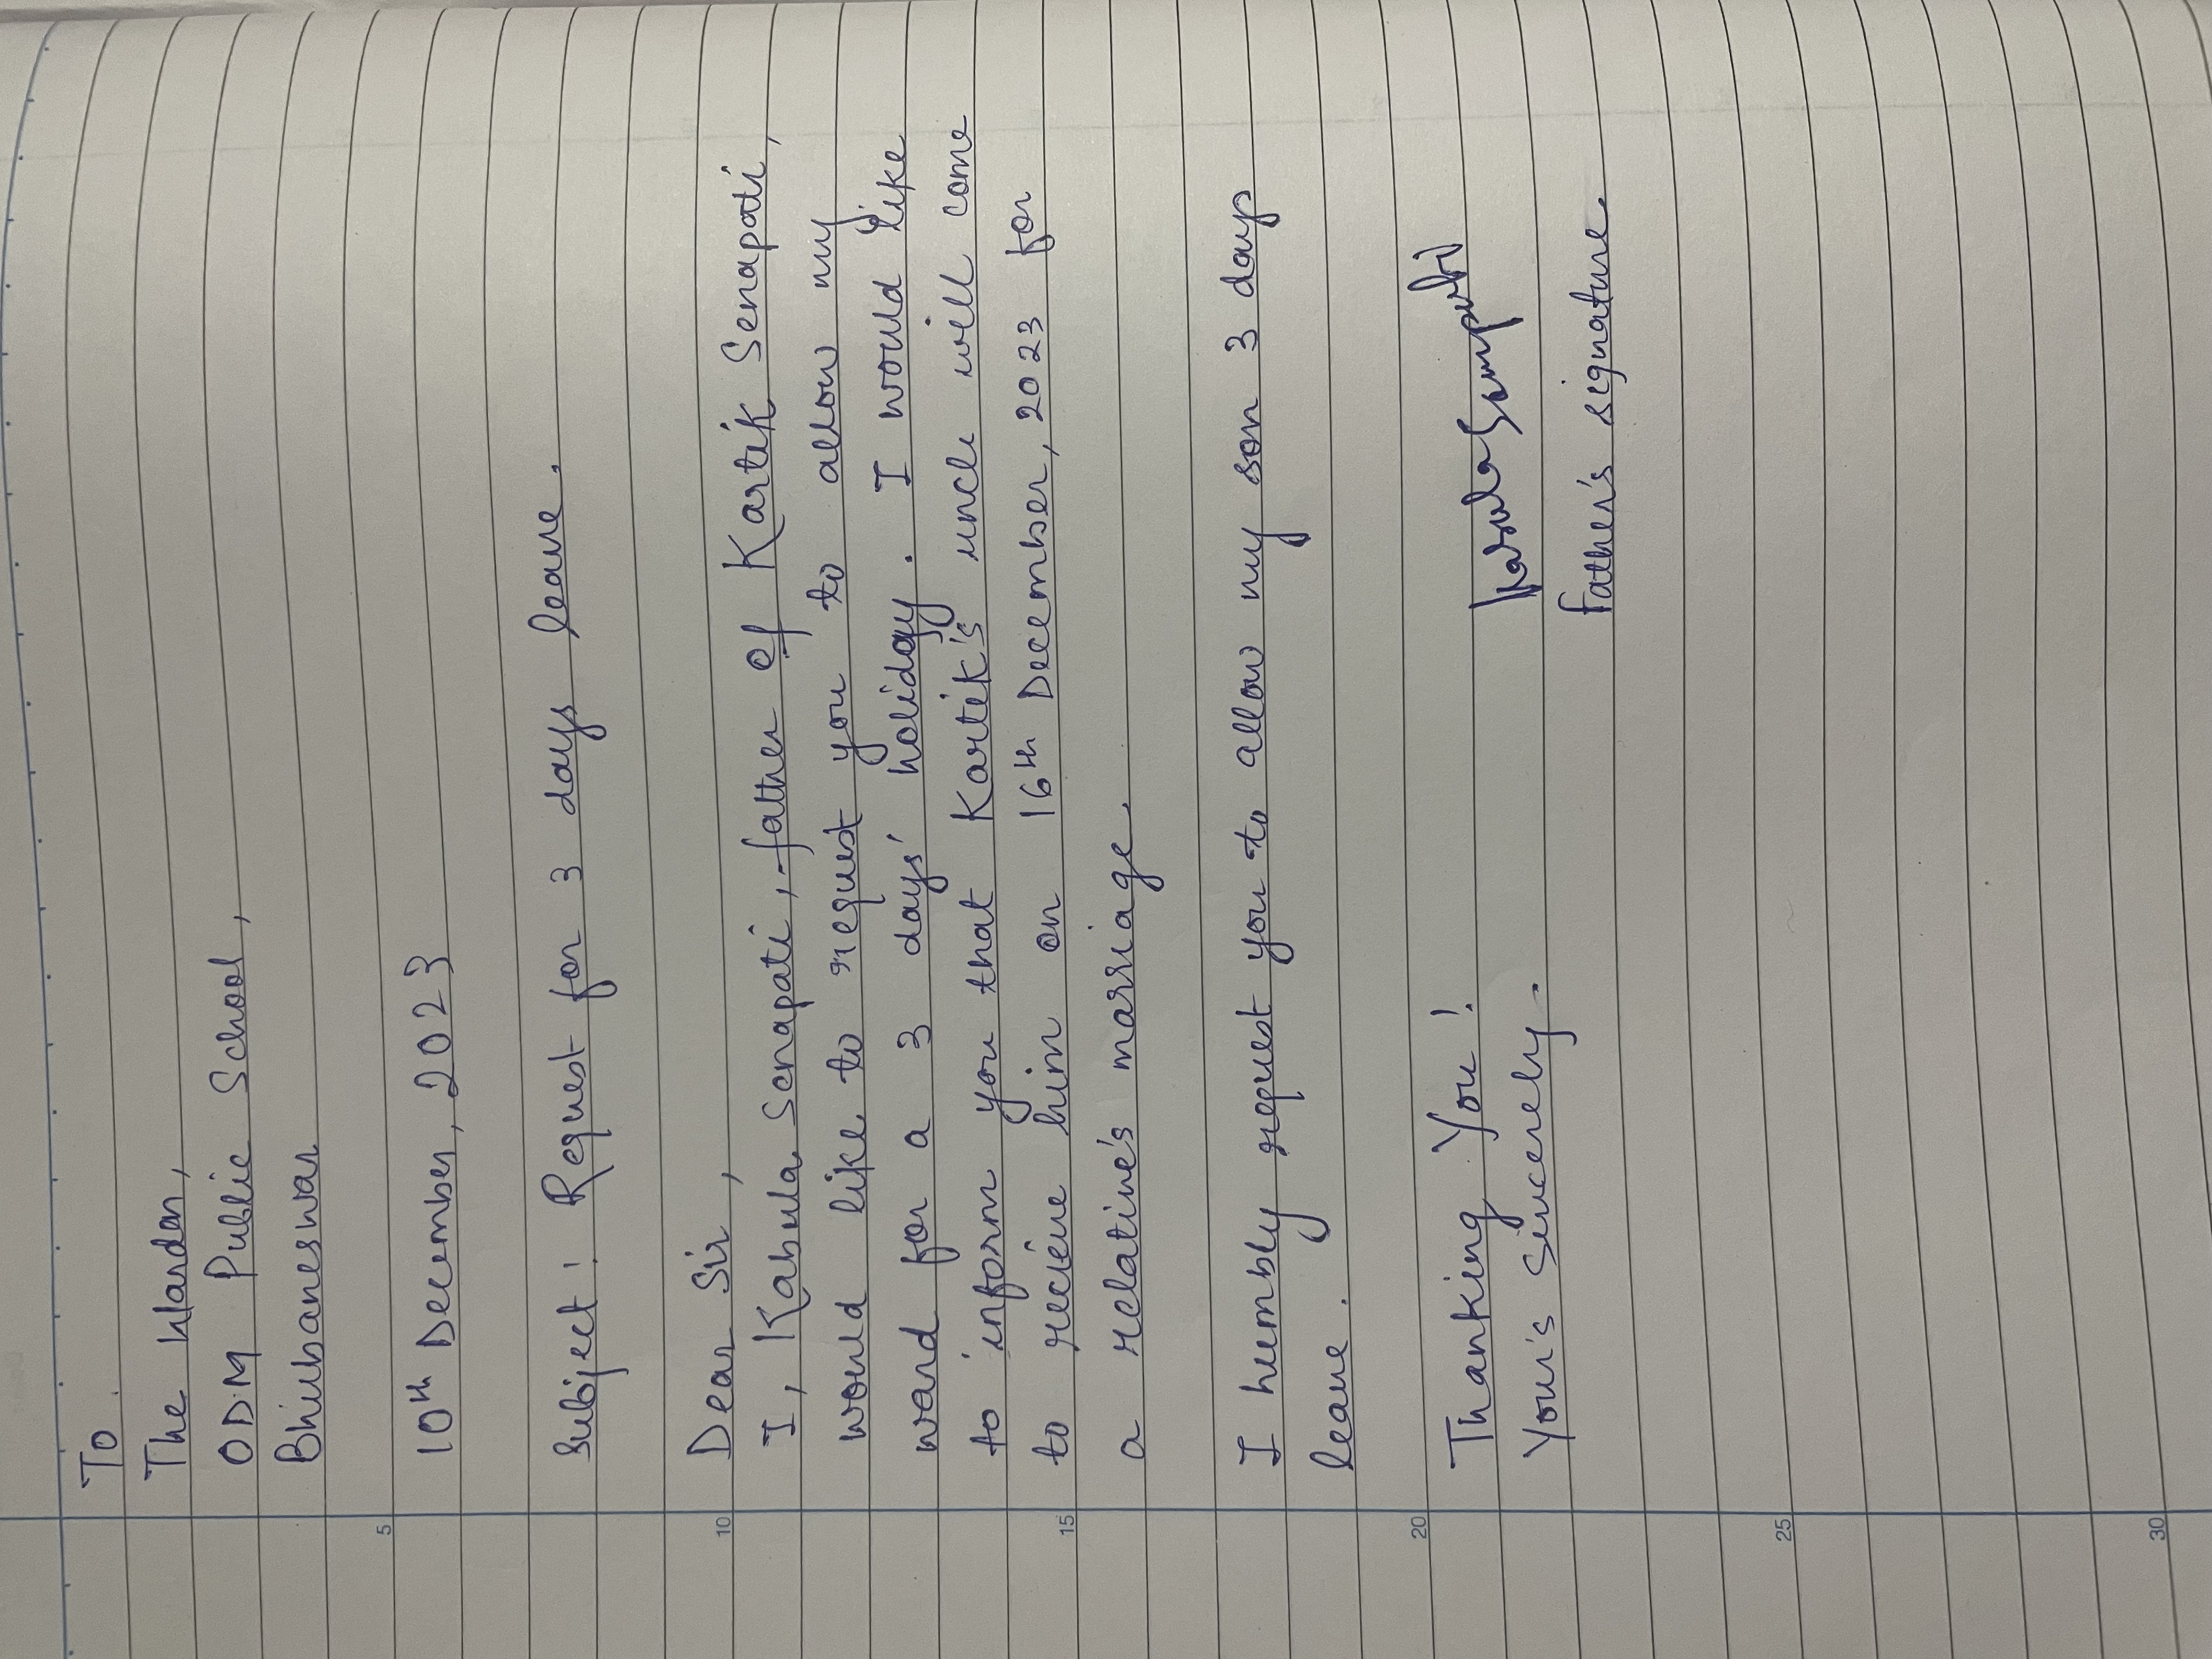 To
The Warden,
ODM Public School,
Bhubaneswar
10th December, 2023
Subject: Request for 3 days leave.
Dear Sir,
I, Kabula Senapati, father of Kartik Senapati,
would like to request you to allow my
ward for a 3 days' holiday. I would like
to inform you that Kartik's uncle will come
to recieve him on 16th December, 2023 for
a relative's marriage.
I humbly request you to allow my son 3 days
leave.
Thanking You!
Your's Sincerely.
Kabula Senapati
Father's signature.
5
10
15
20
25
30